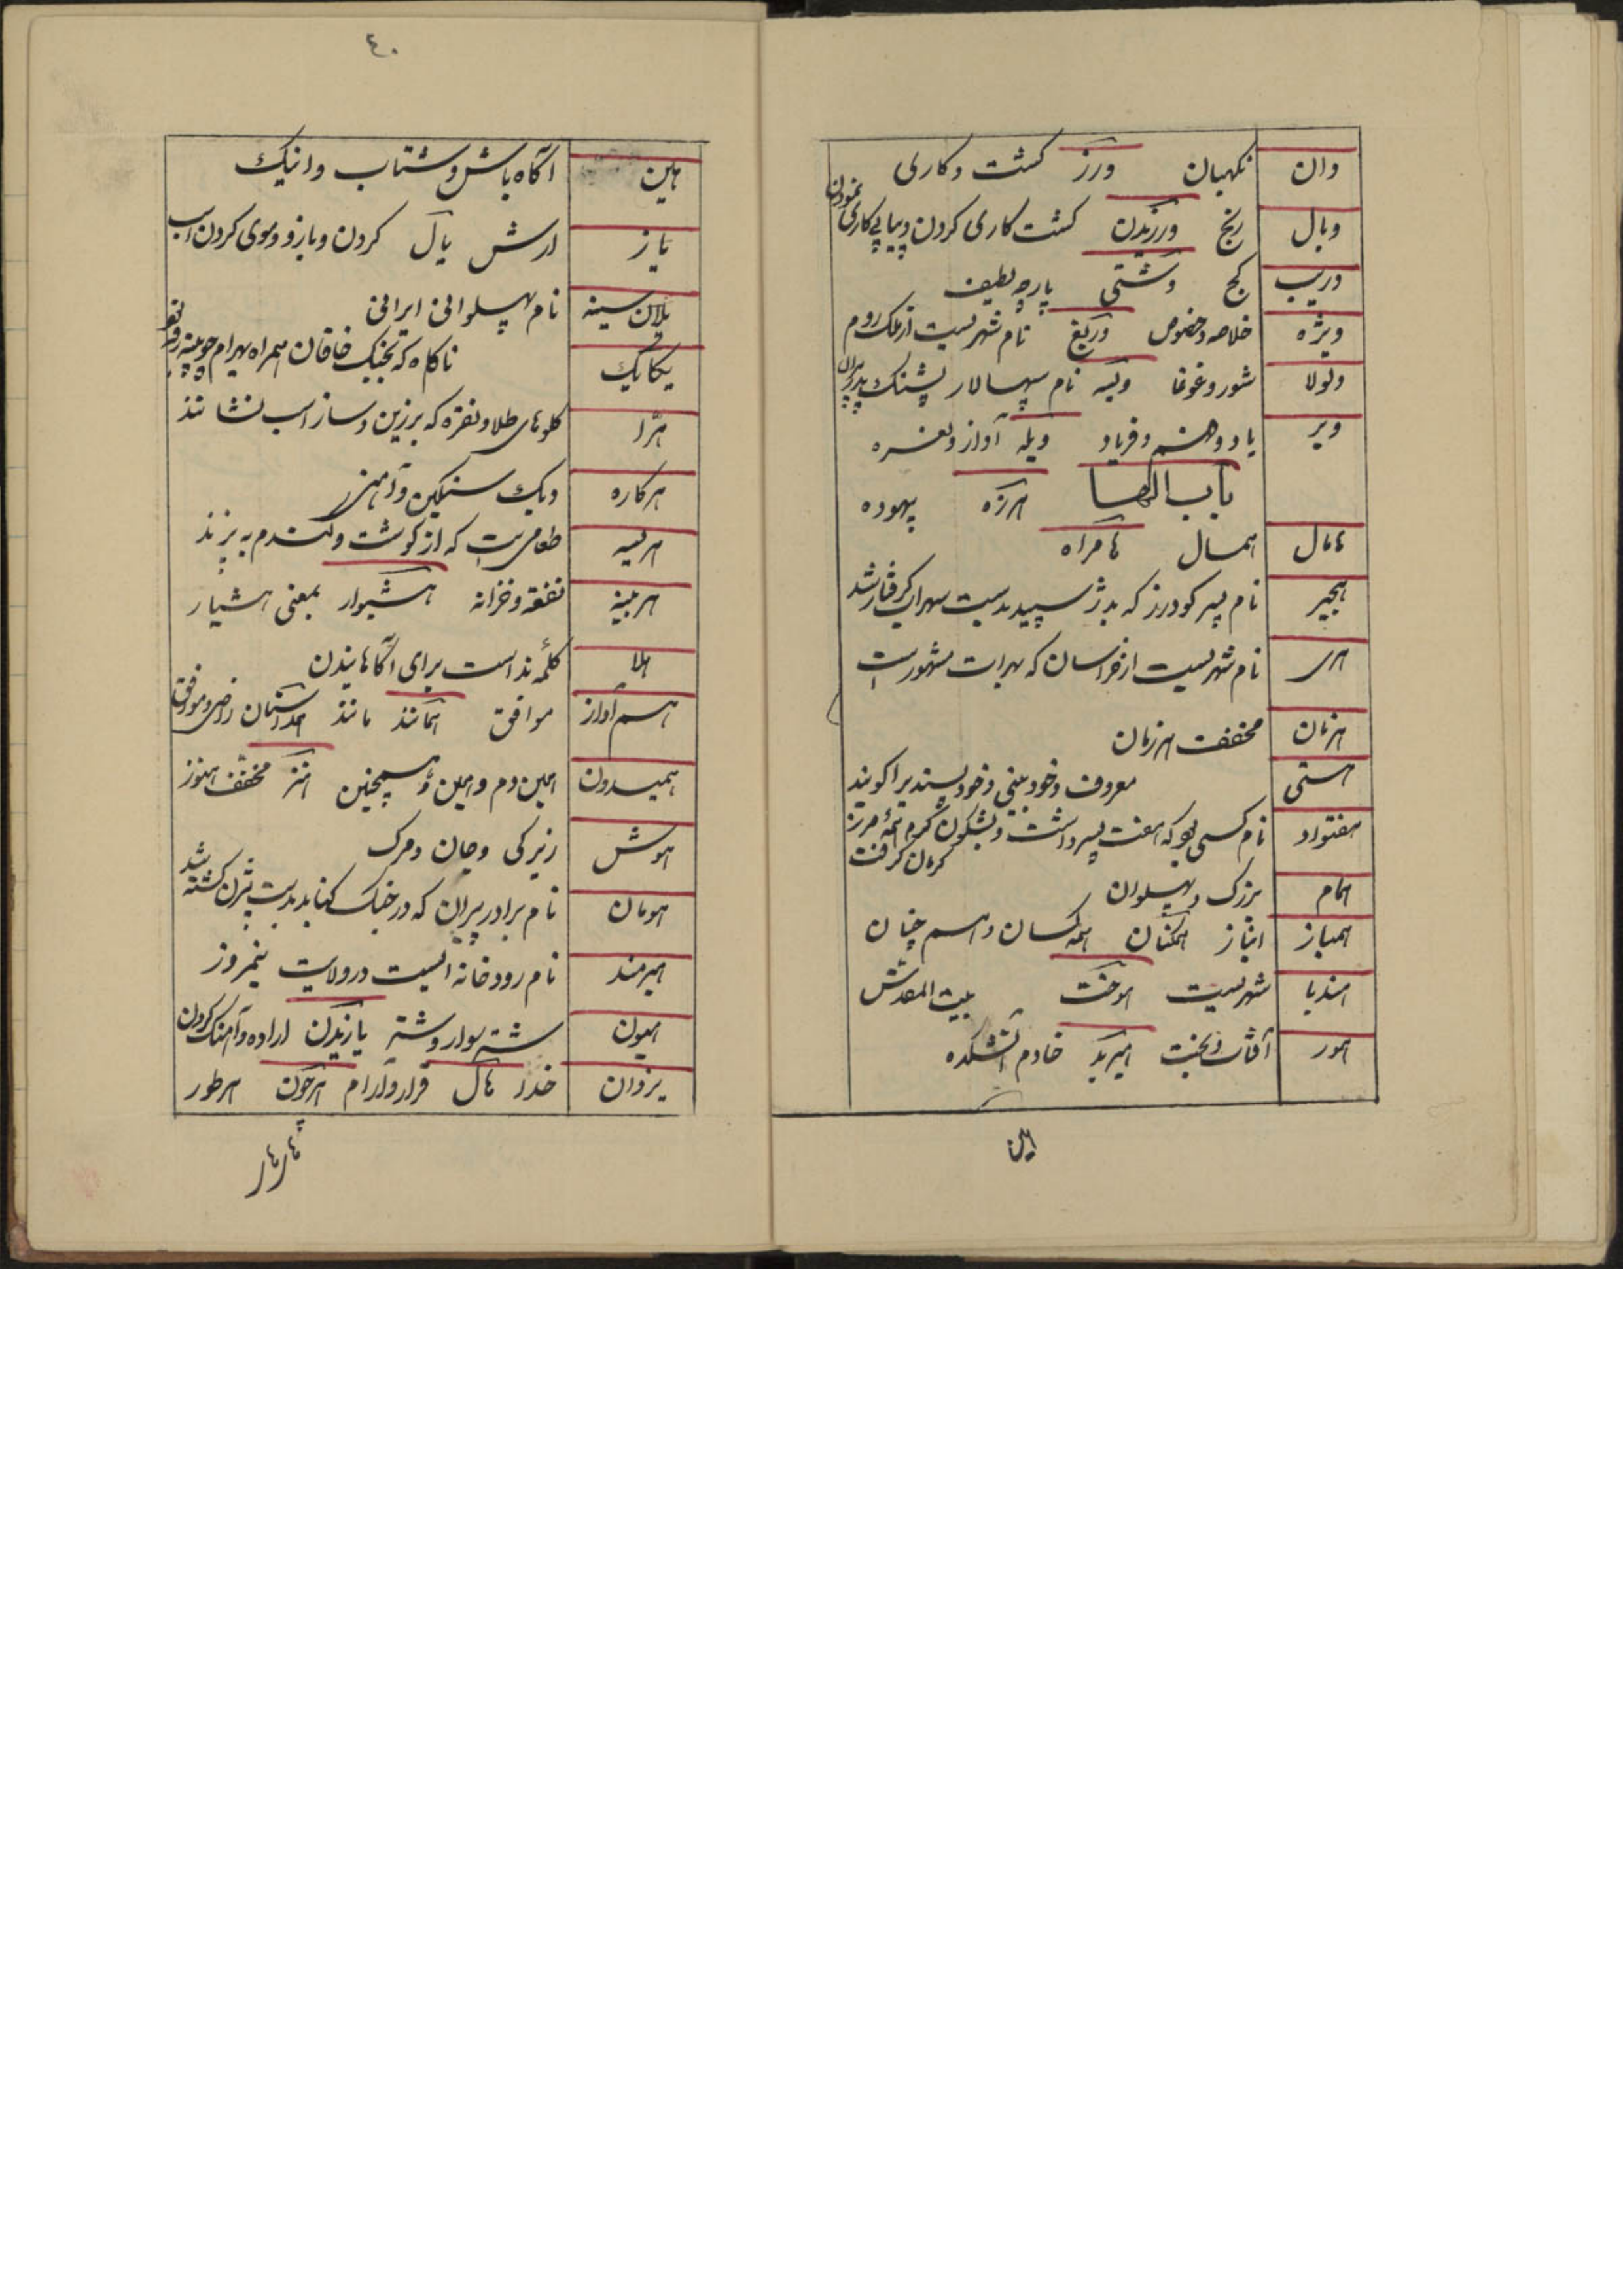 وان نکهبان ورز کشت و کاری
وبال رنج ورزیدن کشت کاری کردن و پیاپی کاری نمودن
وریب کج وشتی پارچه لطیف
ویژه خلاصه و خصوص وریغ نام شهریست از ملک روم
ولولا شور و غوغا ویسه نام سپهسالار پشنک پدر پیران
ویر یاد و فهم و فریاد ویله آواز و نعره
باب الها هرزه بیهوده
هامال همسال هامراه
هجیر نام پسر کودرز که بدژ سپید بدست سهراب کرفتار شد
هری نام شهریست از خراسان که بهرات مشهور است
هزمان مخفف هر زمان
هستی معروف و خود بینی و خود پسندیرا کویند
هفتواد نام کسی بود که هفت پسر داشت و بشکون کرم همۀ مرز
کرمان کرفت
همام بزرک و پهلوان
همباز انباز همکنان همه کسان و هم چنان
هندیا شهریست هوخت بیت المقدس
هور آفتاب و بخت هیربد خادم آتشکده
هین
٤٠
هین آکاه باش و شتاب و اینک
یاز ارش یال کردن و بازو و موی کردن اسب
یلان سینه نام پهلوانی ایرانی
یکایک ناکاه که بجنک خاقان همراه بهرام چوبینه رفته
هرّا کلوهای طلا و نقره که بر زین و ساز اسب نشانند
هرکاره دیک سنکین و آهنین
هریسه طعامیست که از کوشت و کندم به پزند
هزینه نفقه و خزانه هشیوار بمعنی هشیار
هلا کلمۀ نداست برای آکاهانیدن
هم آواز موافق همانند مانند همداستان راضی و موافق
همیدون همین دم و همین و همچنین هنز مخفف هنوز
هوش زیرکی و جان و مرک
هومان نام برادر پیران که در جنک کنابد بدست بیژن کشته شد
هیرمند نام رودخانه ایست در ولایت نیمروز
هیون شتر سوار و شتر یازیدن اراده و آهنک کردن
یزدان خدا هال قرار و آرام هرچون هر طور